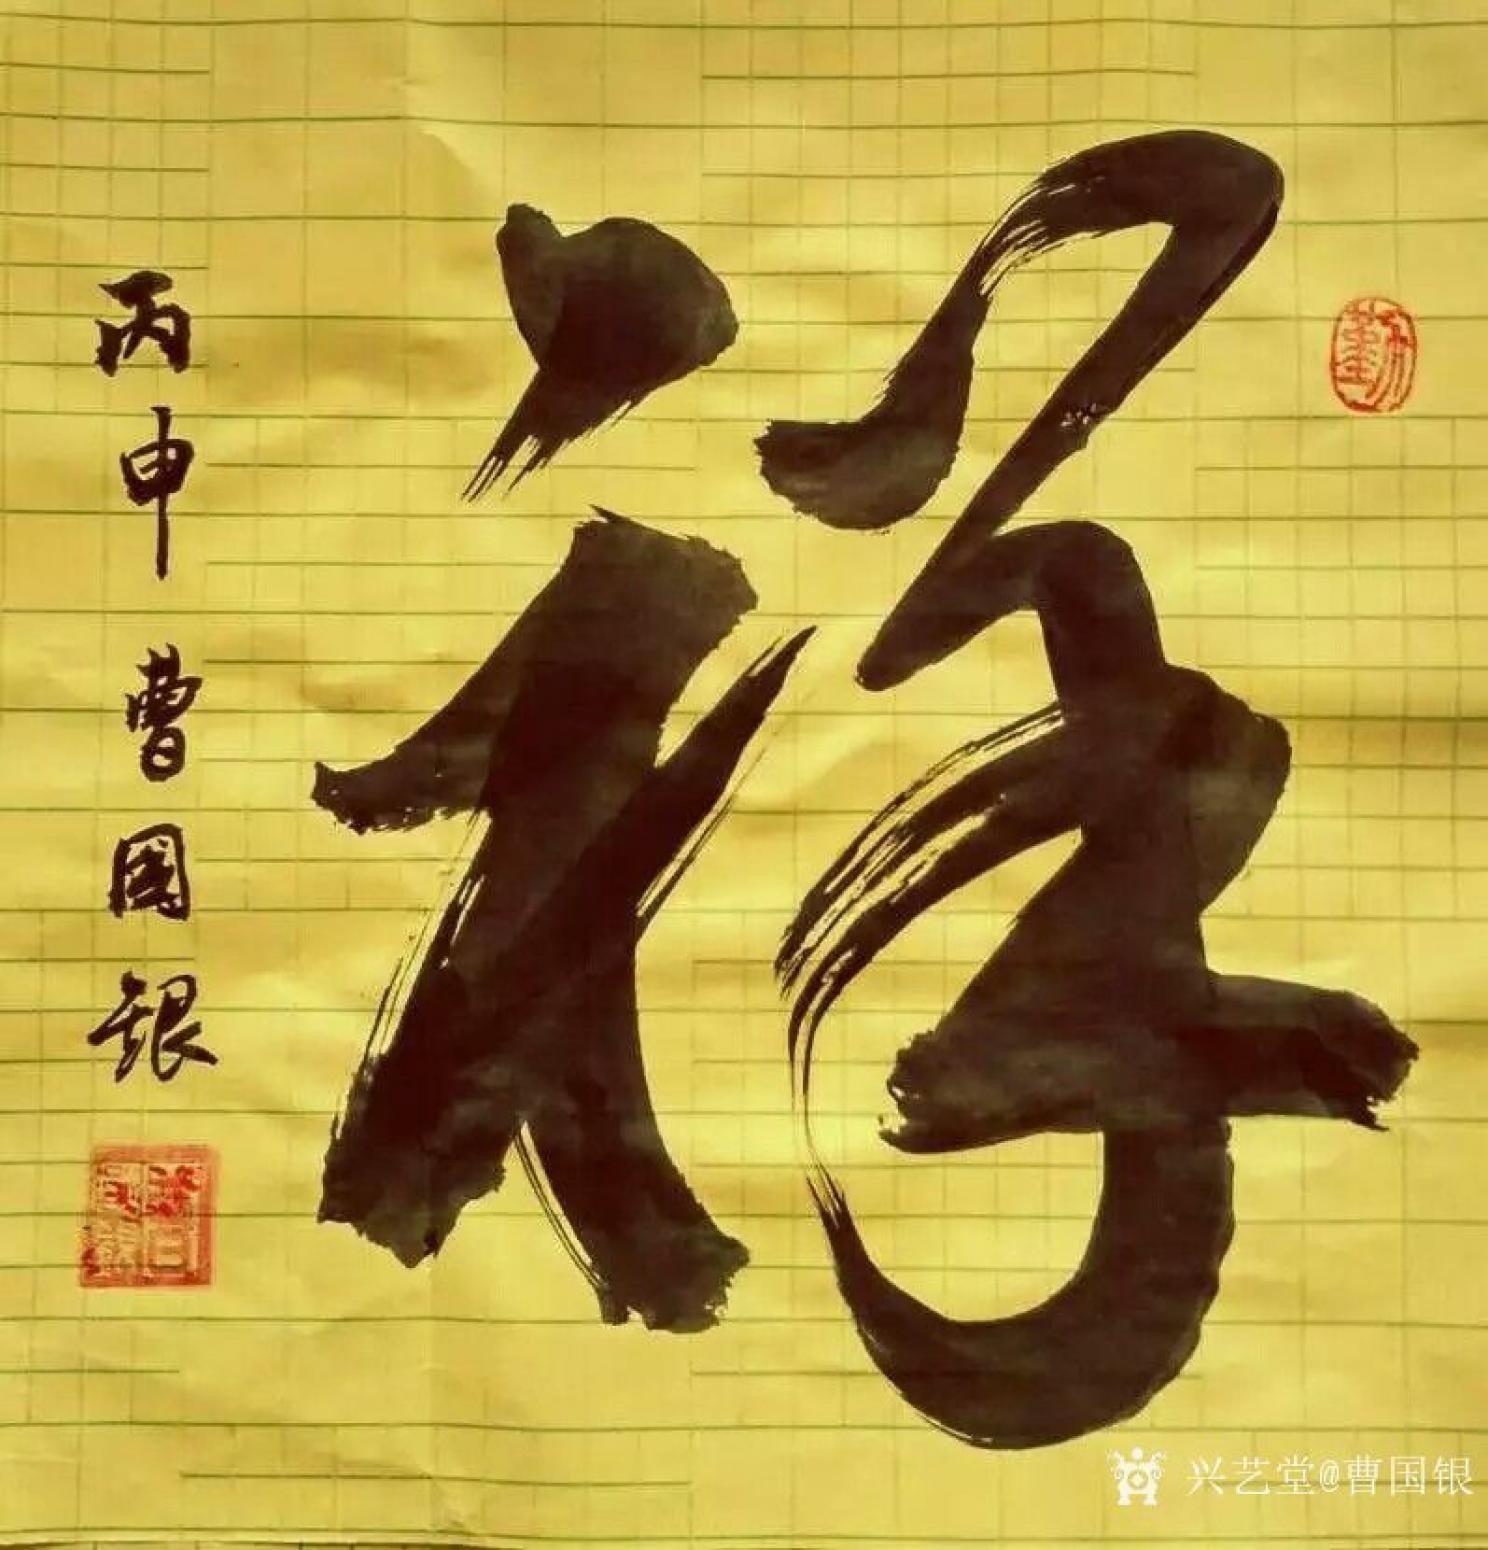 福
丙申 曹国银
兴艺堂@曹国银